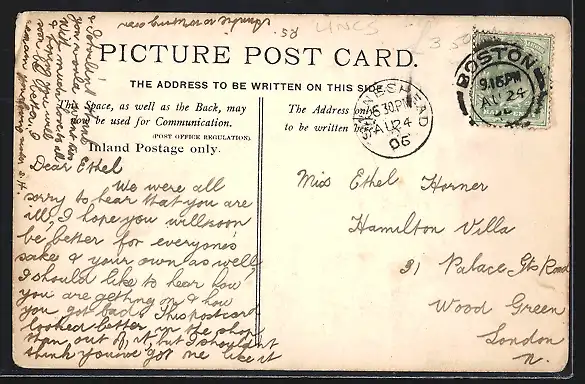 LINCS
85
PICTURE POST CARD.
THE ADDRESS TO BE WRITTEN ON THIS SIDE
This Space, as well as the Back, may
now be used for Communication.
(POST OFFICE REGULATION)
Inland Postage only.
The Address only
to be written here
BOSTON
9.15PM
AU 24
SWINESHEAD
6 30PM
AU 24
06
Dear Ethel
We were all
sorry to hear that you are
ill, I hope you will soon
be better for everyones'
sake & your own as well,
I should like to hear how
you are getting on & how
you got bad. This postcard
looked better in the shop
than out of it, but I shouldn't
think you've got one like it
Miss Ethel Horner
Hamilton Villa
31 Palace Gts Road
Wood Green
London
N.